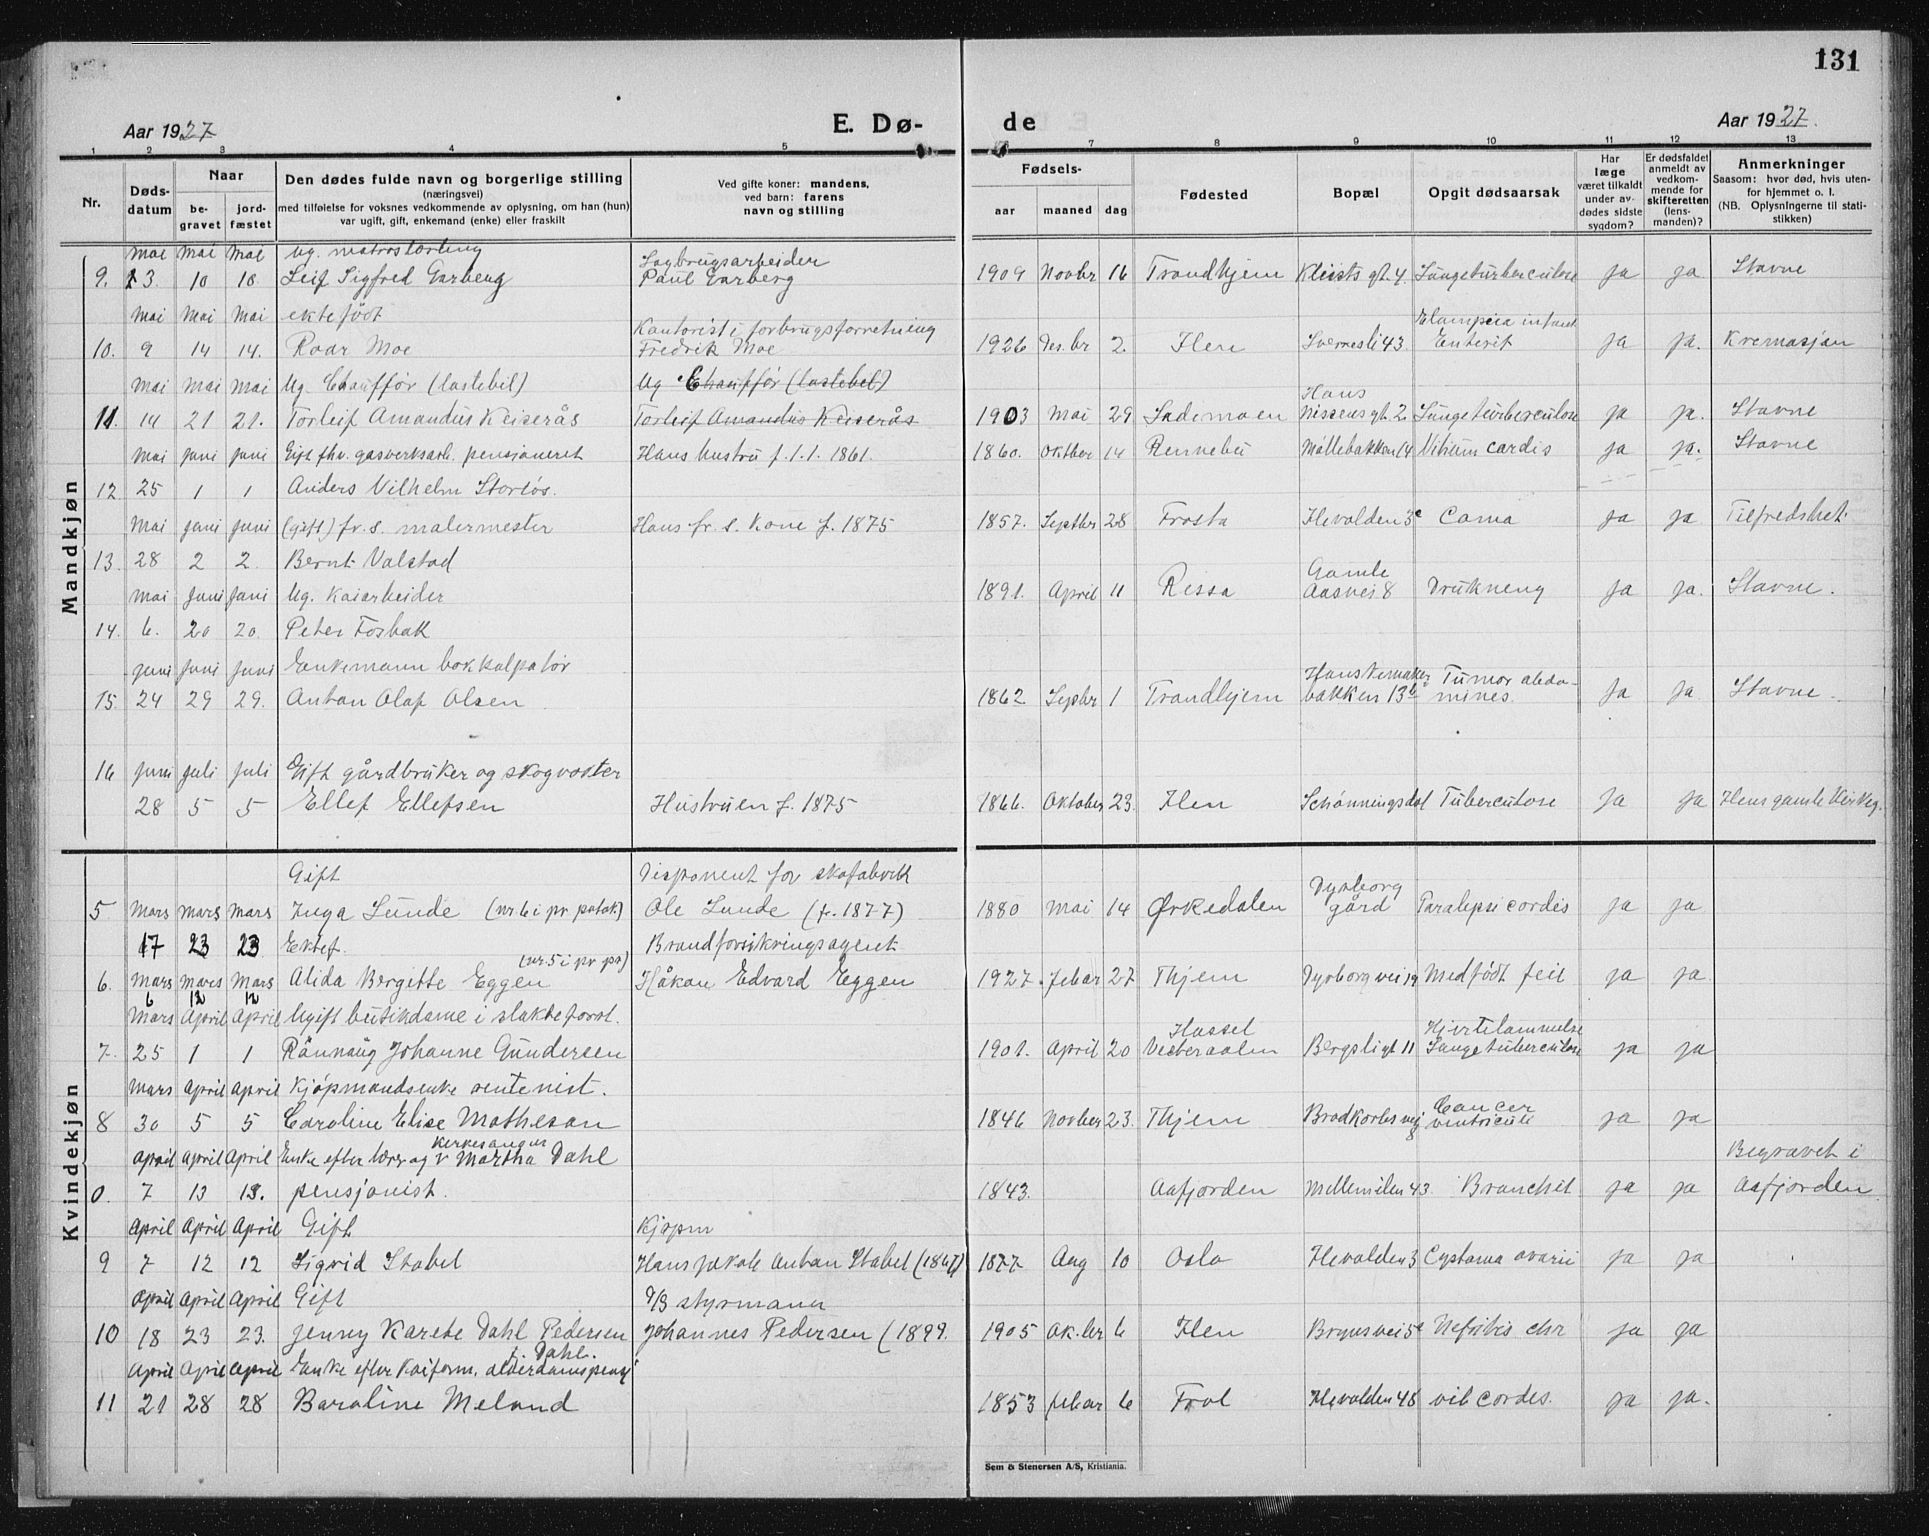 131
Aar 1927
E. Dø-
de
Aar 1927.
1 2 3 4 5 6 7 8 9 10 11 12 13
Nr.
Døds-
datum
Naar
be-
gravet
jord-
fæstet
Den dødes fulde navn og borgerlige stilling
(næringsvei)
med tilføielse for voksnes vedkommende av oplysning, om han (hun)
var ugift, gift, enkemand (enke) eller fraskilt
Ved gifte koner: mandens,
ved barn: farens
navn og stilling
Fødsels-
aar maaned dag
Fødested
Bopæl
Opgit dødsaarsak
Har
læge
været tilkaldt
under av-
dødes sidste
sygdom?
Er dødsfaldet
anmeldt av
vedkom-
mende for
skifteretten
(lens-
manden)?
Anmerkninger
Saasom: hvor død, hvis uten-
for hjemmet o. l.
(NB. Oplysningerne til stati-
stikken)
Mandkjøn
mai mai mai Ug. matroslærling Sagbrugsarbeider
9. 3. 10 10. Leif Sigfred Garberg Paul Garberg 1909 Novbr 16 Trondhjem Kleists gt. 4. Lungetuberculose ja ja. Stavne
mai mai mai ektefödt Kontorist i forbrugsforretning Elampsia infant
10. 9 14 14. Roar Moe Fredrik Moe 1926 Des.br 2. Ilen Svernesli 43. Enterit ja ja. Kremasjon
mai mai mai Ug. Chauffør (lastebil) Ug Chauffør (lastebil) Hans
11. 14 21 21. Torleif Amandus Keiserås Torleif Amandus Keiserås 1903 mai 29 Lademoen Nissens gt. 2 Lungetuberculose ja ja. Stavne
mai juni juni Gift fhv. gasverksarb. pensjoneret Hans hustru f. 1.1. 1861. 1860. oktber 14 Rennebu Møllebakken 14 Vitium cordis ja ja. Stavne
12 25 1 1 Anders Vilhelm Storløs.
mai juni juni (gift) fr. s. malermester Hans fr. s. kone f. 1875 1857. Septbr 28 Frosta Ilevolden 3c Coma ja ja Tilfredshet.
13. 28 2 2. Bernt Valstad
mai juni juni Ug. kaiarbeider 1891. April 11 Rissa Gamle Aasvei 8 Drukneng ja ja. Stavne.
14. 6. 20 20. Peter Fosbak
juni juni juni Enkemann bokkolpatør Hanskemaker Tumor abdo-
15. 24 29 29. Anton Olaf Olsen 1862 Septbr 1 Trondhjem bakken 13b mines. ja ja. Stavne.
16 juni juli juli Gift gårdbruker og skogvokter
28 5 5 Ellef Ellefsen Hustruen f. 1875 1866. Oktober 23. Ilen Schønningsdal Tuberculose ja ja Ilens gamle Kirkeg.
Kvindekjøn
Gift Disponent for skofabrik Dyrborg
5 mars mars mars Inga Lunde (nr. 6 i pr. protok) Ole Lunde (f. 1877) 1880 mai 14 Ørkedalen gård Paralysi cordis ja ja
17 23 23 Ektef. Brandforsikringsagent
(nr. 5 i pr. pr)
6. mars mars mars Alida Bergitte Eggen Håkon Edvard Eggen 1927. Febar 27 Thjem Dyrborgvei 19 Medfödt feil ja ja.
6 12 12
mars April April Ugift butikdame i slakteforst. Hassel Hjertelammelse
7. 25 1 1 Rannaug Johanne Gundersen 1901. April 20 Vesteraalen Bergsligt 11 Lungetuberculose ja ja
mars april april Kjøpmandsenke rentenist.
8 30 5 5 Caroline Elise Mathesan 1846 Novber 23. Thjem Brodkorbsvei 8 Cancer ventriculi ja ja
april april april Enke efter lærer og kirkesanger Martha Dahl Begravet i
0. 7 13 13. pensjonist. 1843. Aafjorden Mellemilen 43 Bronchit ja ja Aafjorden
april april april Gift Kjøpm
9 7 12 12 Sigrid Stabel Hans Jakob Anton Stabel (1867) 1877 Aug 10 Oslo Ilevolden 3 Cystoma ovarii ja ja
april april april Gift d/S styrmann
10 18 23 23. Jenny Karete Dahl Pedersen Johannes Pedersen (1899. 1905 Ok.ber 6 Ilen Brynsvei 5c Nefritis chr ja ja
f. Dahl.
april april april Enke efter kaiform. alderdomspensj
11 21 28 28 Baroline Meland 1853 febar 6 Frol Ilevolden 45 vit cordes. ja ja.
Sem & Stenersen A/S, Kristiania.